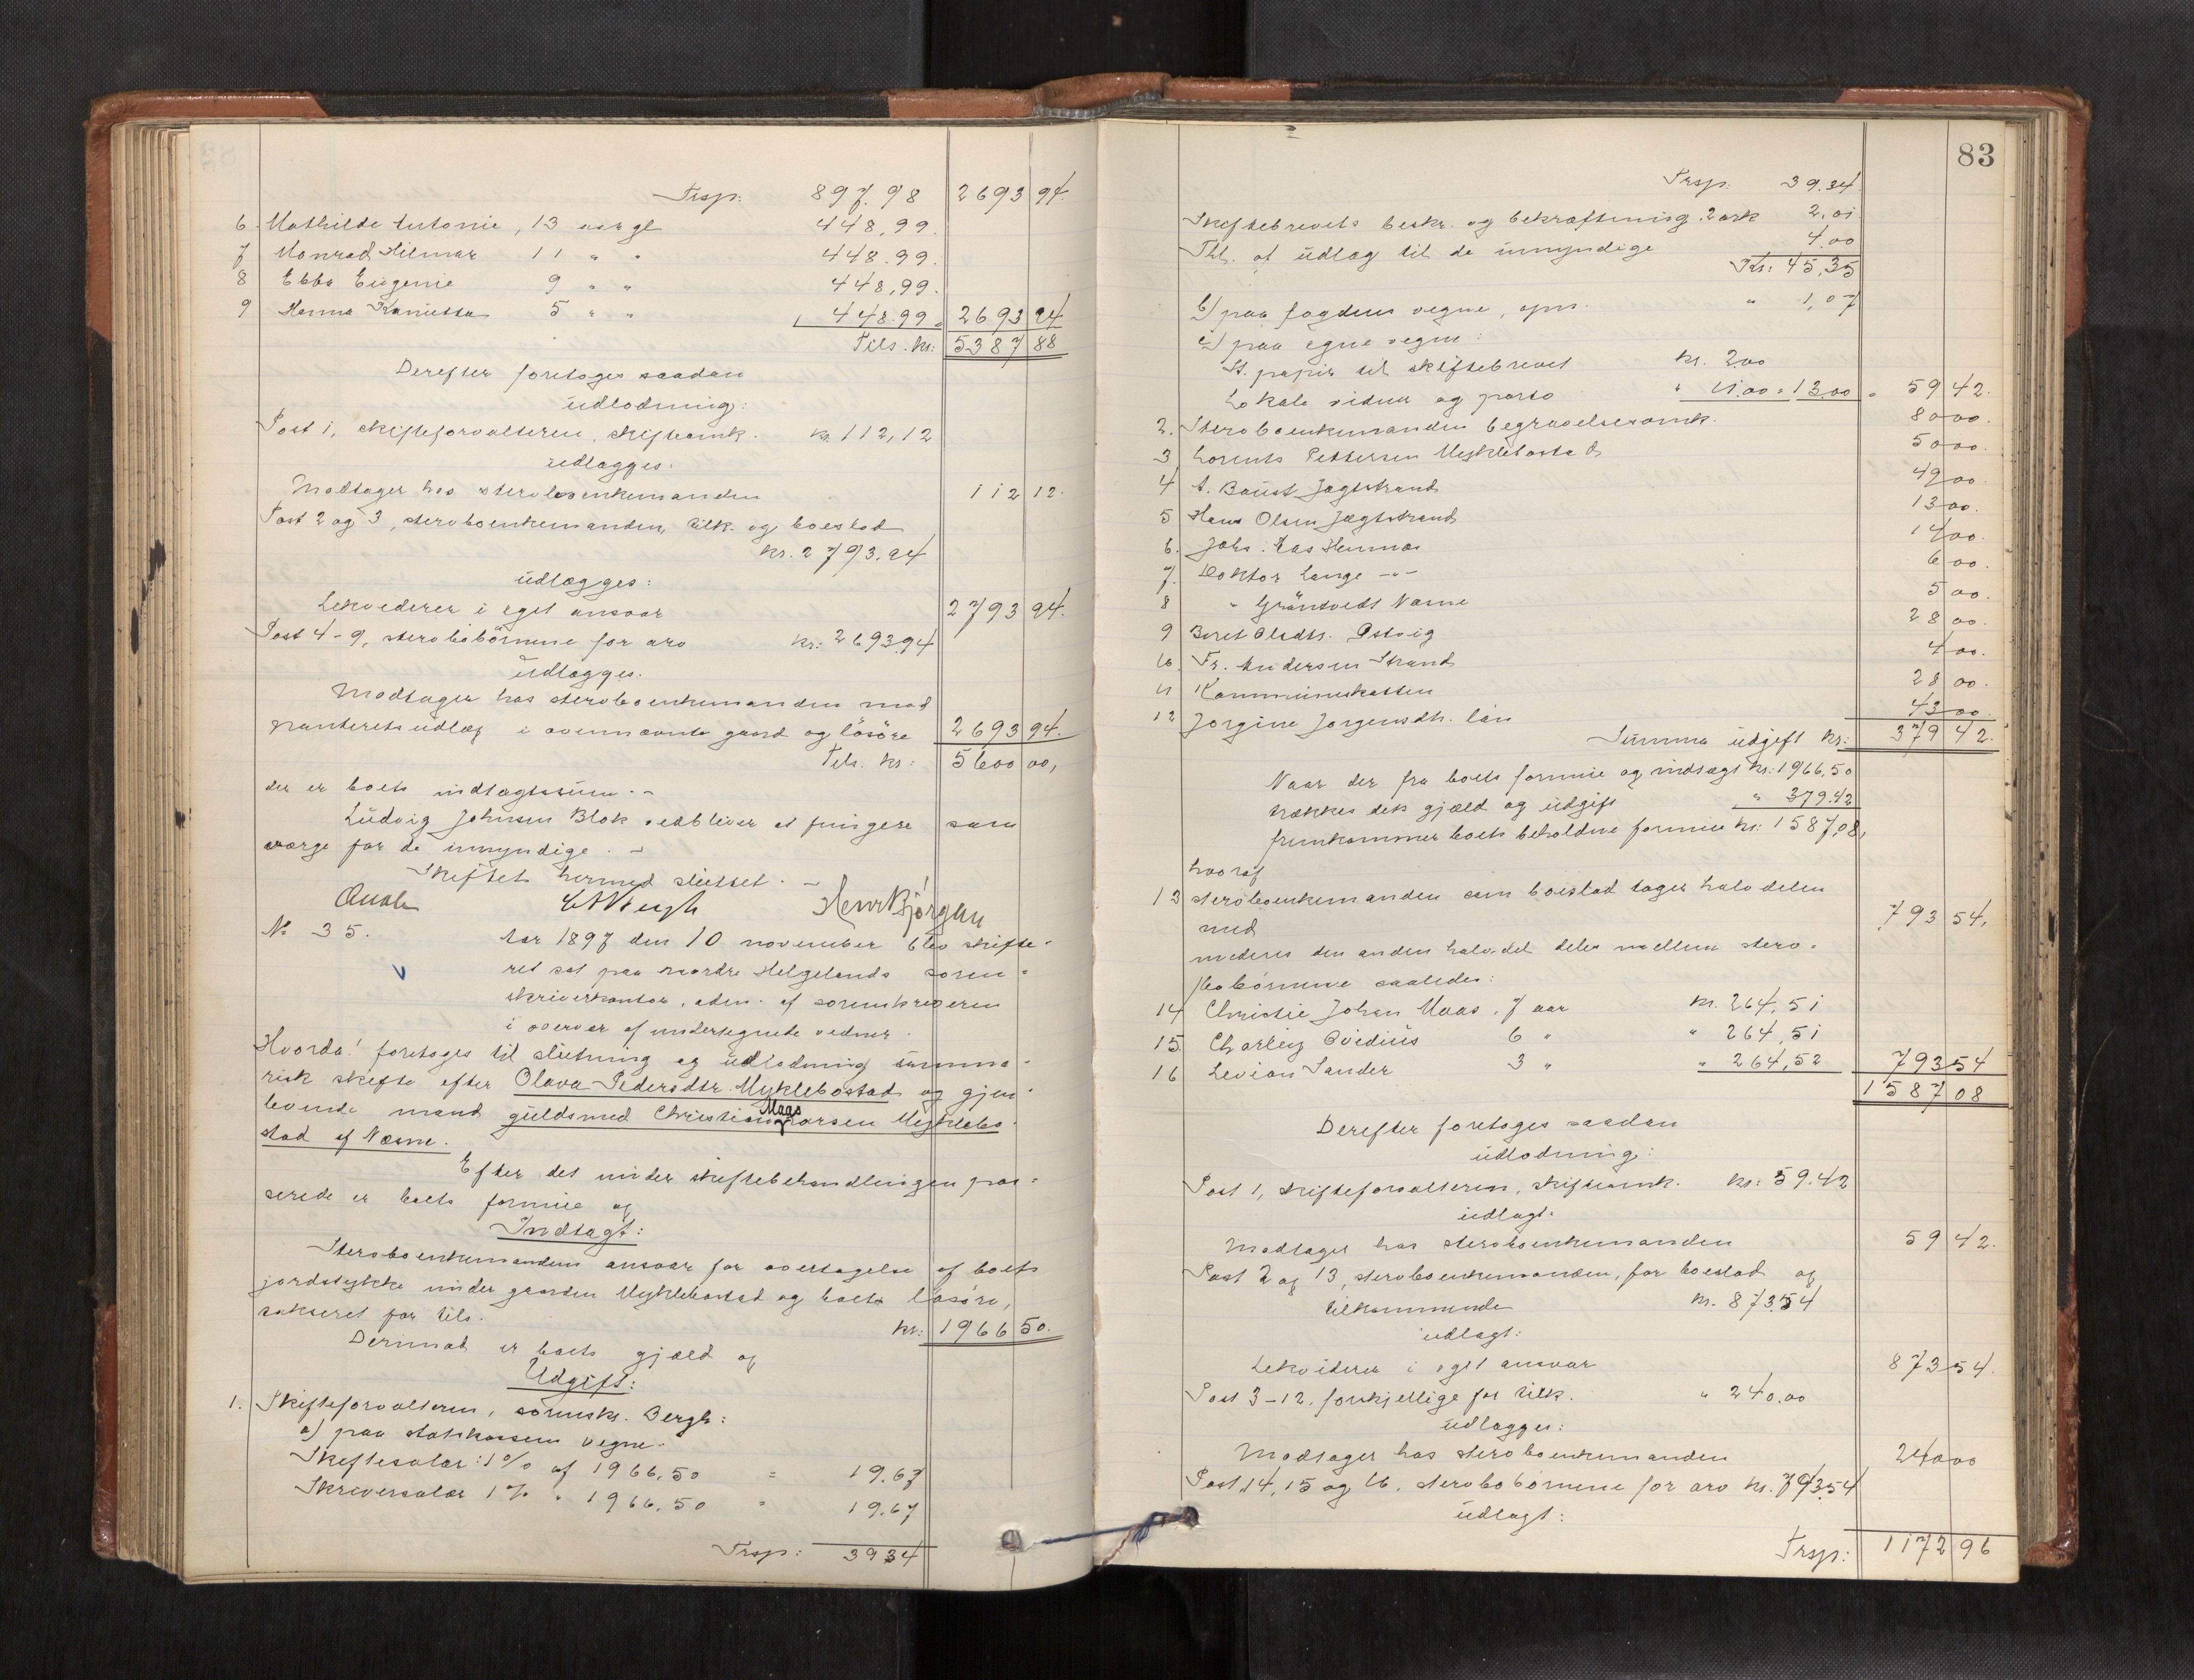 Trsp: 897.98 2693 94.
6. Mathilde Antonie, 13 aar gl 448,99.
7 Monrad Hilmar 11 " " 448.99.
8 Ebba Eugenie 9 " " 448,99.
9 Hanna 5 " " 448.99 = 2693 94
Tils. kr: 5387 88
Derefter foretoges saadan
udlodning:
Post 1, skifteforvalteren, skifteomk. kr. 112,12
udlægges:
Modtager hos sterboenkemanden 112 12.
Post 2 og 3, sterboenkemanden, tilk. og boeslod
kr. 2793.94
udlægges:
Lekviderer i eget ansvar 2793 94.
Post 4-9, sterbobörnene for arv kr: 2693.94
udlægges.
Modtager hos sterboenkemanden mod
panteretsudlæg i ovennævnte gaard og lösöre 2693 94.
Tils. kr: 5600 00,
der er boets indtægtssum. -
Ludvig Johnsen Blok vedbliver at fungere som
værge for de umyndige. -
Skiftet hermed sluttet. -
Henr Bjørgan
No 35. Aar 1897 den 10 november blev skifte-
ret sat paa nordre Helgelands soren-
skriverkontor, adm. af sorenskriveren
i overvær af undertegnede vidner.
Hvorda! foretoges til slutning og udlodning summa-
risk skifte efter Olava Pedersdtr. Myklebostad og gjen-
levende mand guldsmed Christian Maas Larsen Myklebo-
stad af Næsne.
Efter det under skiftebehandlingen pas-
serede er boets formue og
Indtægt:
Sterboenkemandens ansvar for overtagelse af boets
jordstykke under gaarden Myklebostad og boets lösöre,
takseret for tils. kr: 1966 50.
Derimod er boets gjæld og
Udgift:
1. Skifteforvalteren, sorenskr. Bergh:
a) paa statskassens vegne.
Skiftesalær: 1% af 1966,50 = 19.67
Skriversalær 1% " 1966,50 = 19.67
Trsp: 39 34
83
Trsp: 39.34
Skiftebrevets beskr. og bekræftning. 2 ark 2.01
Thl. af udlæg til de umyndige 4.00
Kr: 45,35
b) paa fogdens vegne, " 1,07
c) paa egne vegne:
St. papir til skiftebrevet kr. 2.00
Lokale vidner og porto " 11.00 = 13.00 = 59 42.
2. Sterboenkemanden begravelsesomk. 80 00.
3 Lorents Pettersen Myklebostad 50 00.
4 A. Baust Jægtstrand 49 00.
5 Hans Olsen Jægtstrand 13 00.
6. Johs. Aas Hemnæs 14 00.
7. Doktor Lange -"- 6 00.
8 " Gröntvedt Næsne 5 00.
9 Beret Olsdtr. Östvig 28 00.
10. Fr. Andersen Strand 4 00.
11 Kommunekassen 28 00.
12 Jorgine Jorgensdtr. lön 43 00.
Summa udgift kr: 379 42.
Naar der fra boets formue og indtægt kr: 1966,50
trækkes dets gjæld og udgift " 379.42
fremkommer boets beholdne formue kr: 1587,08,
hvoraf
13 sterboenkemanden som boeslod tager halvdelen
med 793 54,
medens den anden halvdel deles mellem ster-
bobörnene saaledes:
14 Christie Johan Maas, 7 aar kr. 264,51
15. Charley Ovidius 6 " " 264,51
16 Levian Sander 3 " " 264,52 793 54
1587 08
Derefter foretoges saadan
udlodning:
Post 1, skifteforvalteren, skifteomk. kr: 59.42
udlagt:
Modtager hos sterboenkemanden 59 42.
Post 2 og 13, sterboenkemanden, for boeslod og
tilkommende kr. 873.54
udlagt:
Lekviderer i eget ansvar 873 54.
Post 3-12, forskjellige for tilk. " 240.00
udlægges:
Modtager hos sterboenkemanden 240 00
Post 14, 15 og 16. sterbobörnene for arv kr. 793.54
udlagt:
Trsp: 1172 96